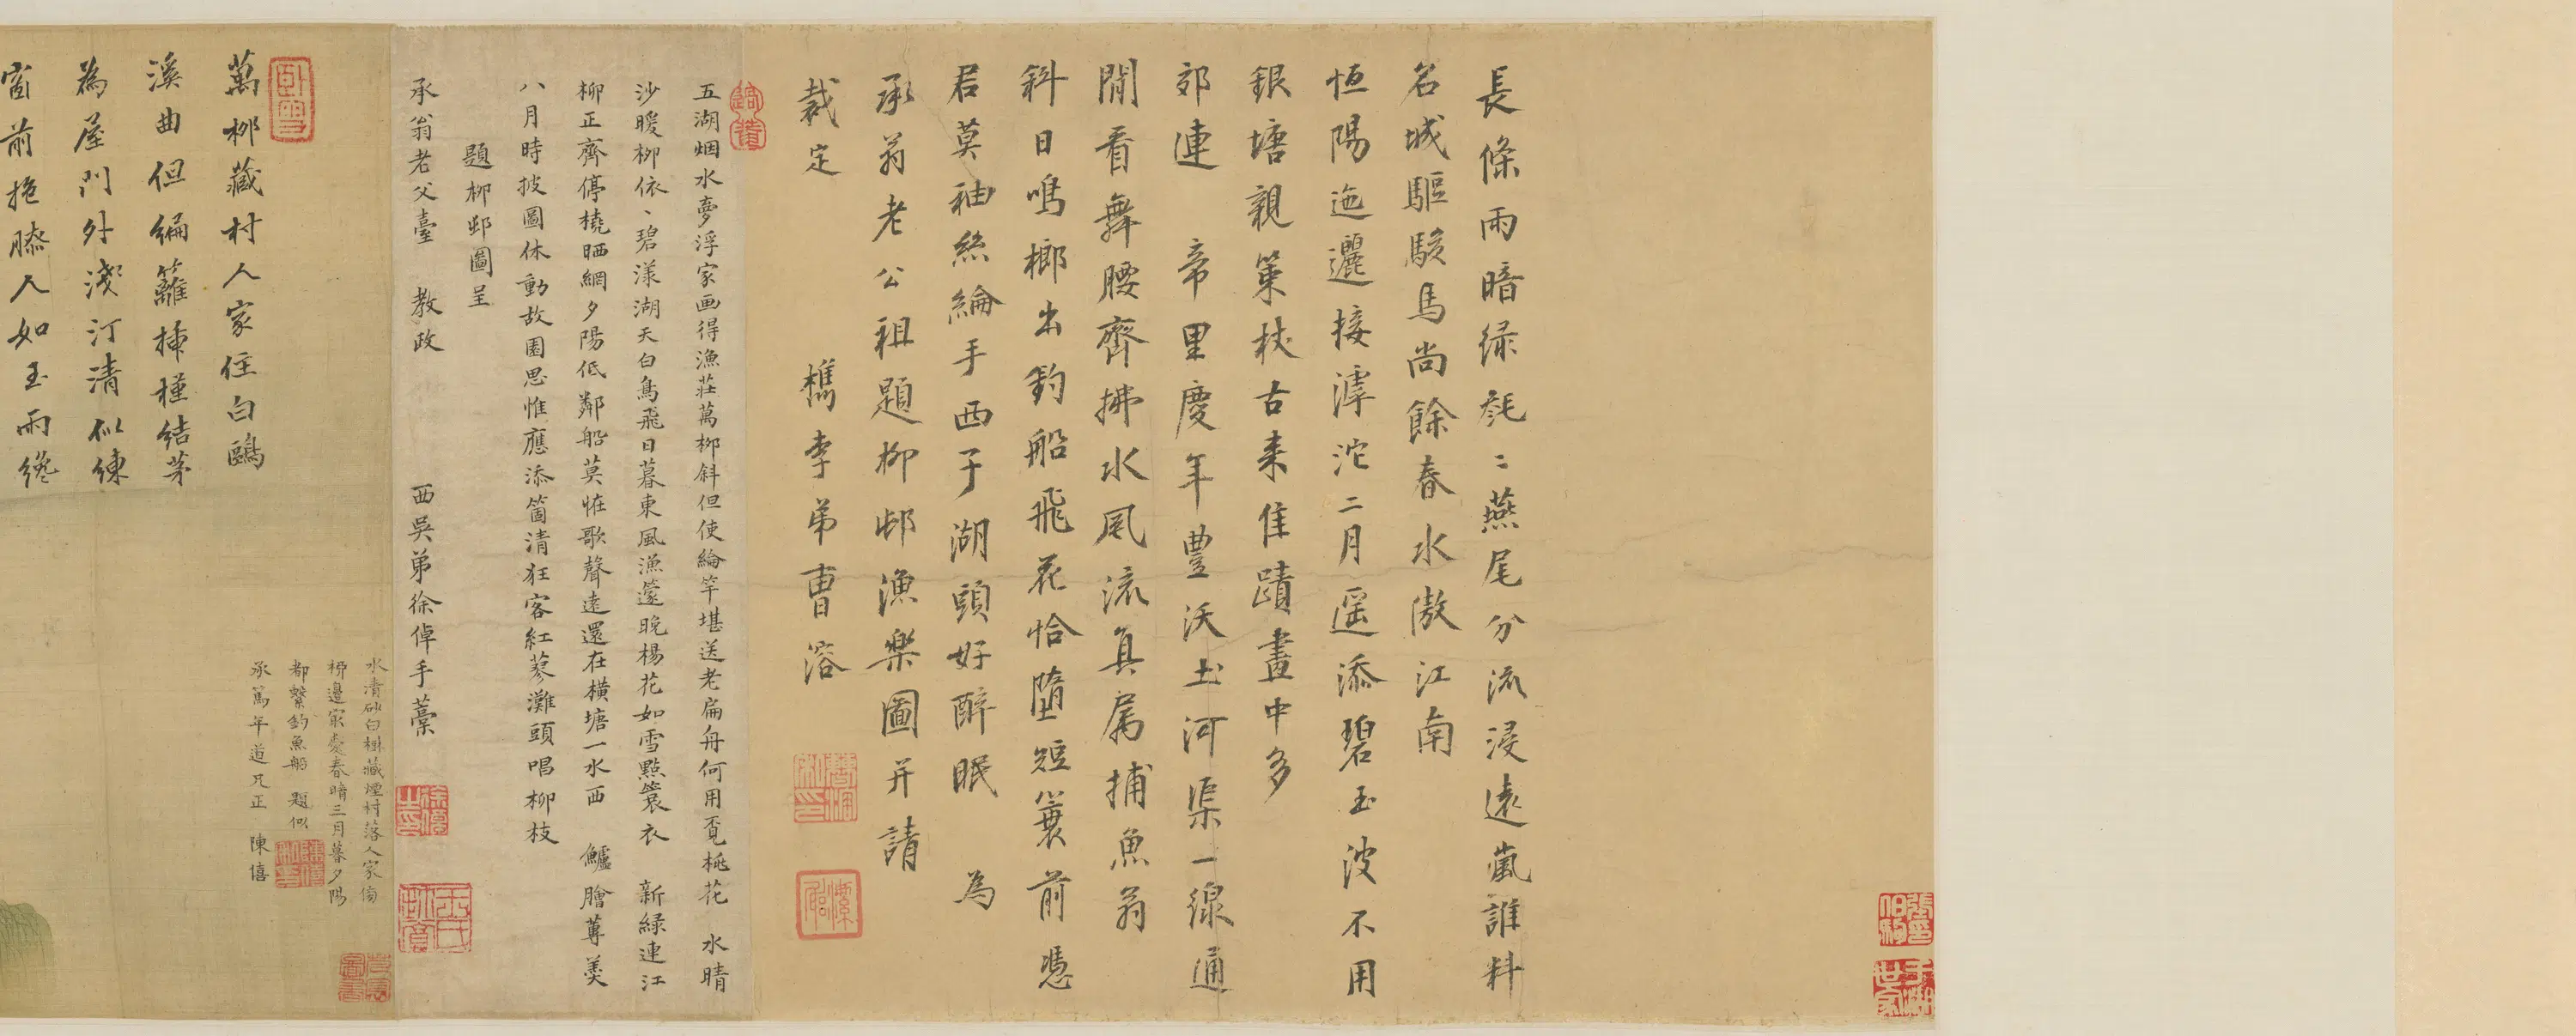 長條雨暗綠毿〻燕尾分流浸遠嵐誰料
名城驅駿馬尚餘春水傲江南
恒陽迤邐接滹沱二月遥添碧玉波不用
銀塘親策杖古来佳蹟畫中多
郊連　帝里慶年豐沃土河渠一線通
閒看舞腰齊拂水風流真屬捕魚翁
斜日鳴榔出釣船飛花恰墮短蓑前憑
君莫袖絲綸手西子湖頭好醉眠　為
承翁老公祖題柳邨漁樂圖并請
裁定　　　檇李弟曹溶
五湖烟水夢浮家画得漁莊萬柳斜但使綸竿堪送老扁舟何用覓桃花　水晴
沙暖柳依、碧漾湖天白鳥飛日暮東風漁篴晚楊花如雪點蓑衣　新綠連江
柳正齊停橈晒網夕陽低鄰船莫怪歌聲遠還在橫塘一水西　鱸膾蓴羹
八月時披圖休動故園思惟應添箇清狂客紅蓼灘頭唱柳枝
題柳邨圖呈
承翁老父臺　教政　　　西吳弟徐倬手藁
水清砂白樹藏煙村落人家傍
柳邊最愛春晴三月暮夕陽
都繫釣魚船　題似
承篤年道兄正　陳僖
萬柳藏村人家住白鷗
溪曲但編籬插槿結茅
為屋門外淺汀清似練
窗前抱膝人如玉雨纔
張伯駒